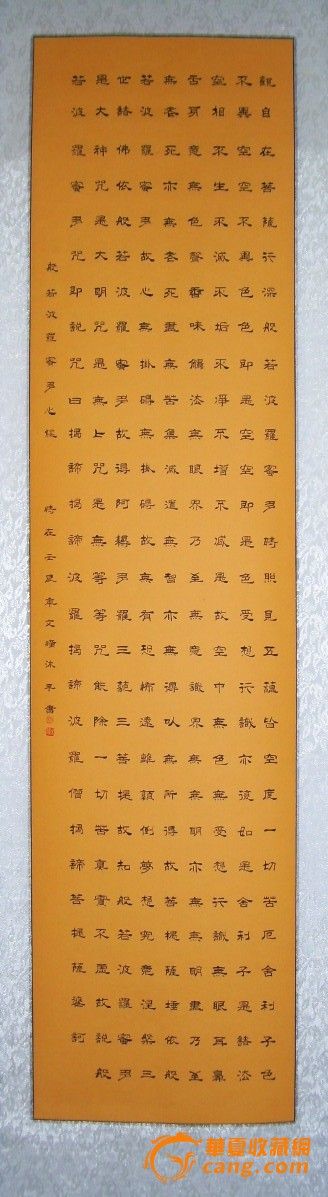 觀自在菩薩行深般若波羅蜜多時照見五蘊皆空度一切苦厄舍利子色
不異空空不異色色即是空空即是色受想行識亦復如是舍利子是諸法
空相不生不滅不垢不淨不增不減是故空中無色無受想行識無眼耳鼻
舌身意無色聲香味觸法無眼界乃至無意識界無無明亦無無明盡乃至
無老死亦無老死盡無苦集滅道無智亦無得以無所得故菩提薩埵依般
若波羅蜜多故心無掛礙無掛礙故無有恐怖遠離顛倒夢想究竟涅槃三
世諸佛依般若波羅蜜多故得阿耨多羅三藐三菩提故知般若波羅蜜多
是大神咒是大明咒是無上咒是無等等咒能除一切苦真實不虛故說般
若波羅蜜多咒即說咒曰揭諦揭諦波羅揭諦波羅僧揭諦菩提薩婆訶
般若波羅蜜多心經 時在壬辰年文沐手書
華夏收藏網
cang.com